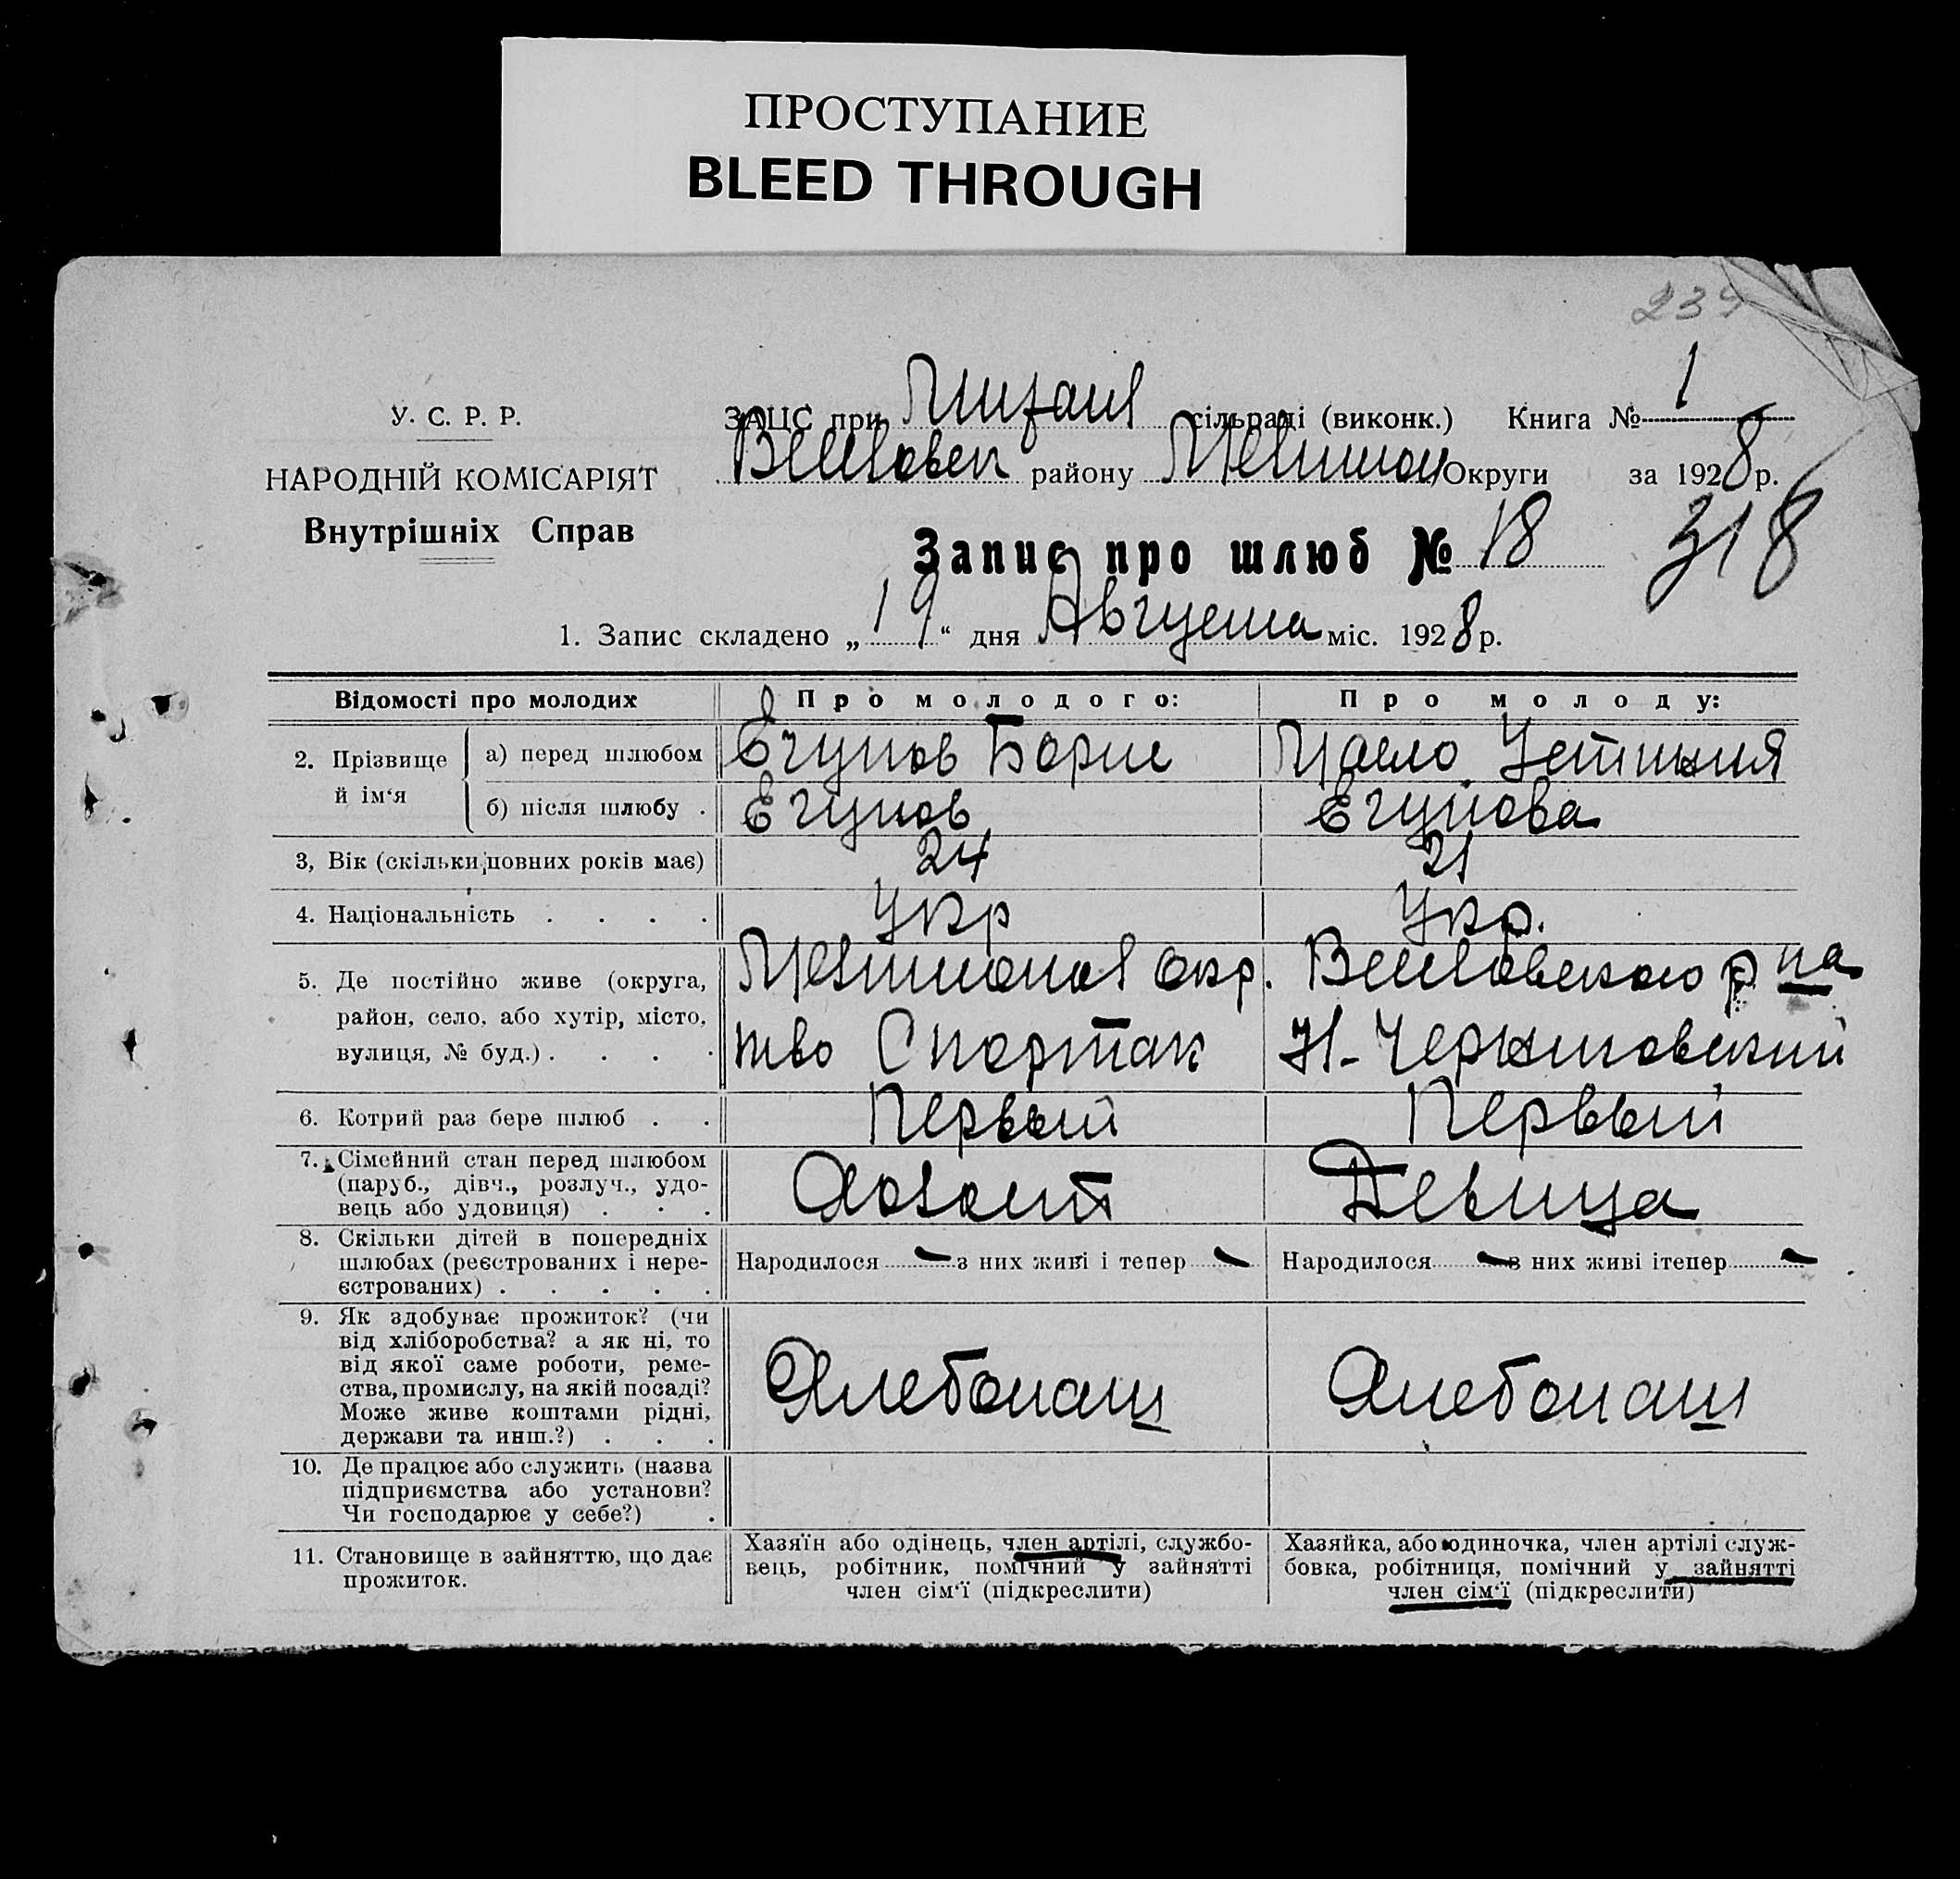 ПРОСТУПАНИЕ
BLEED THROUGH
У. С. Р. Р.
НАРОДНІЙ КОМІСАРІЯТ
Внутрішніх Справ
ЗАЦС при сільраді (виконк.) Книга № 1
району Округи за 1928 р.
Запис про шлюб № 18 318
1. Запис складено „19“ дня Августа міс. 1928 р.
Відомості про молодих Про молодого: Про молоду:
2. Прізвище й ім‘я
а) перед шлюбом Егупов Борис Устиния
б) після шлюбу . Егупов Егупова
3, Вік (скільки повних років має) 24 21
4. Національність . . . . Укр Укр.
5. Де постійно живе (округа,
район, село, або хутір, місто,
вулиця, № буд.) . . . .
окр.
тво Спортак
р на
Н-Черниговский
6. Котрий раз бере шлюб . . Первый Первый
7. Сімейний стан перед шлюбом
(паруб., дівч., розлуч., удо-
вець або удовиця) . . .
Холост Девица
8. Скільки дітей в попередніх
шлюбах (реєстрованих і нере-
єстрованих) . . . . .
Народилося - з них живі і тепер -
Народилося - з них живі ітепер -
9. Як здобуває прожиток? (чи
від хліборобства? а як ні, то
від якої саме роботи, реме-
ства, промислу, на якій посаді?
Може живе коштами рідні,
держави та инш.?) . . .
Хлебопаш Хлебопаш
10. Де працює або служить (назва
підприємства або установи?
Чи господарює у себе?) .
11. Становище в зайняттю, що дає
прожиток.
Хазяїн або одінець, член артілі, службо-
вець, робітник, помічний у зайнятті
член сім‘ї (підкреслити)
Хазяйка, або одиночка, член артілі служ-
бовка, робітниця, помічний у зайнятті
член сім‘ї (підкреслити)